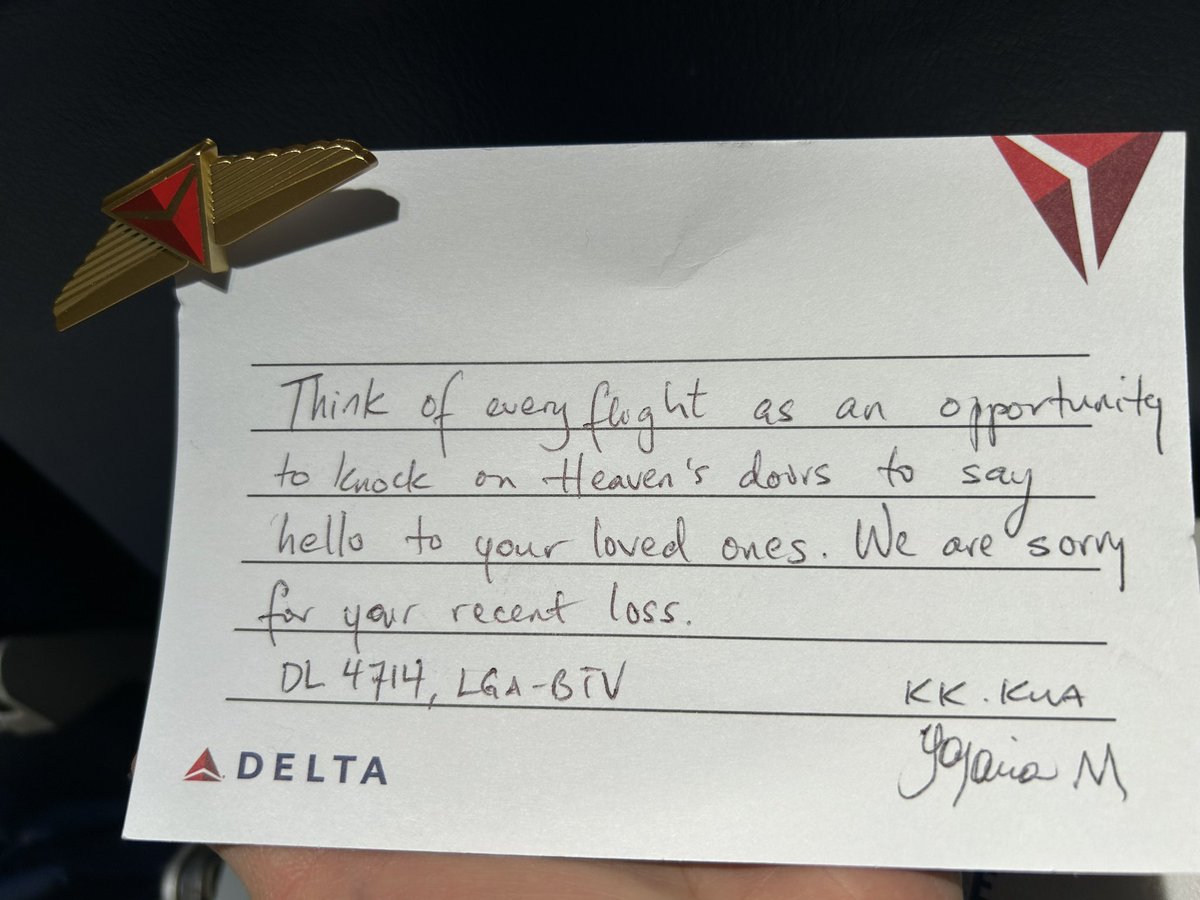 Think of every flight as an opportunity
to knock on Heaven's doors to say
hello to your loved ones. We are sorry
for your recent loss.
DL 4714, LGA-BTV
KK. KUA
DELTA
M